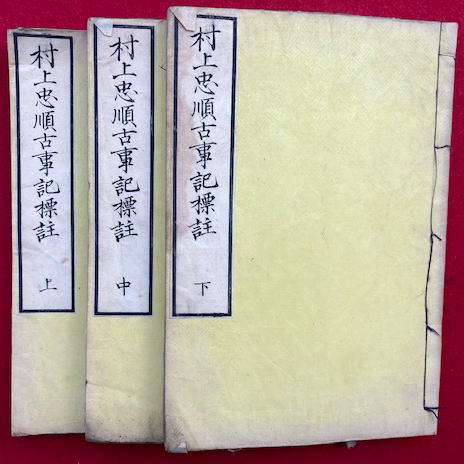 村上忠順古事記標註 上
村上忠順古事記標註 中
村上忠順古事記標註 下